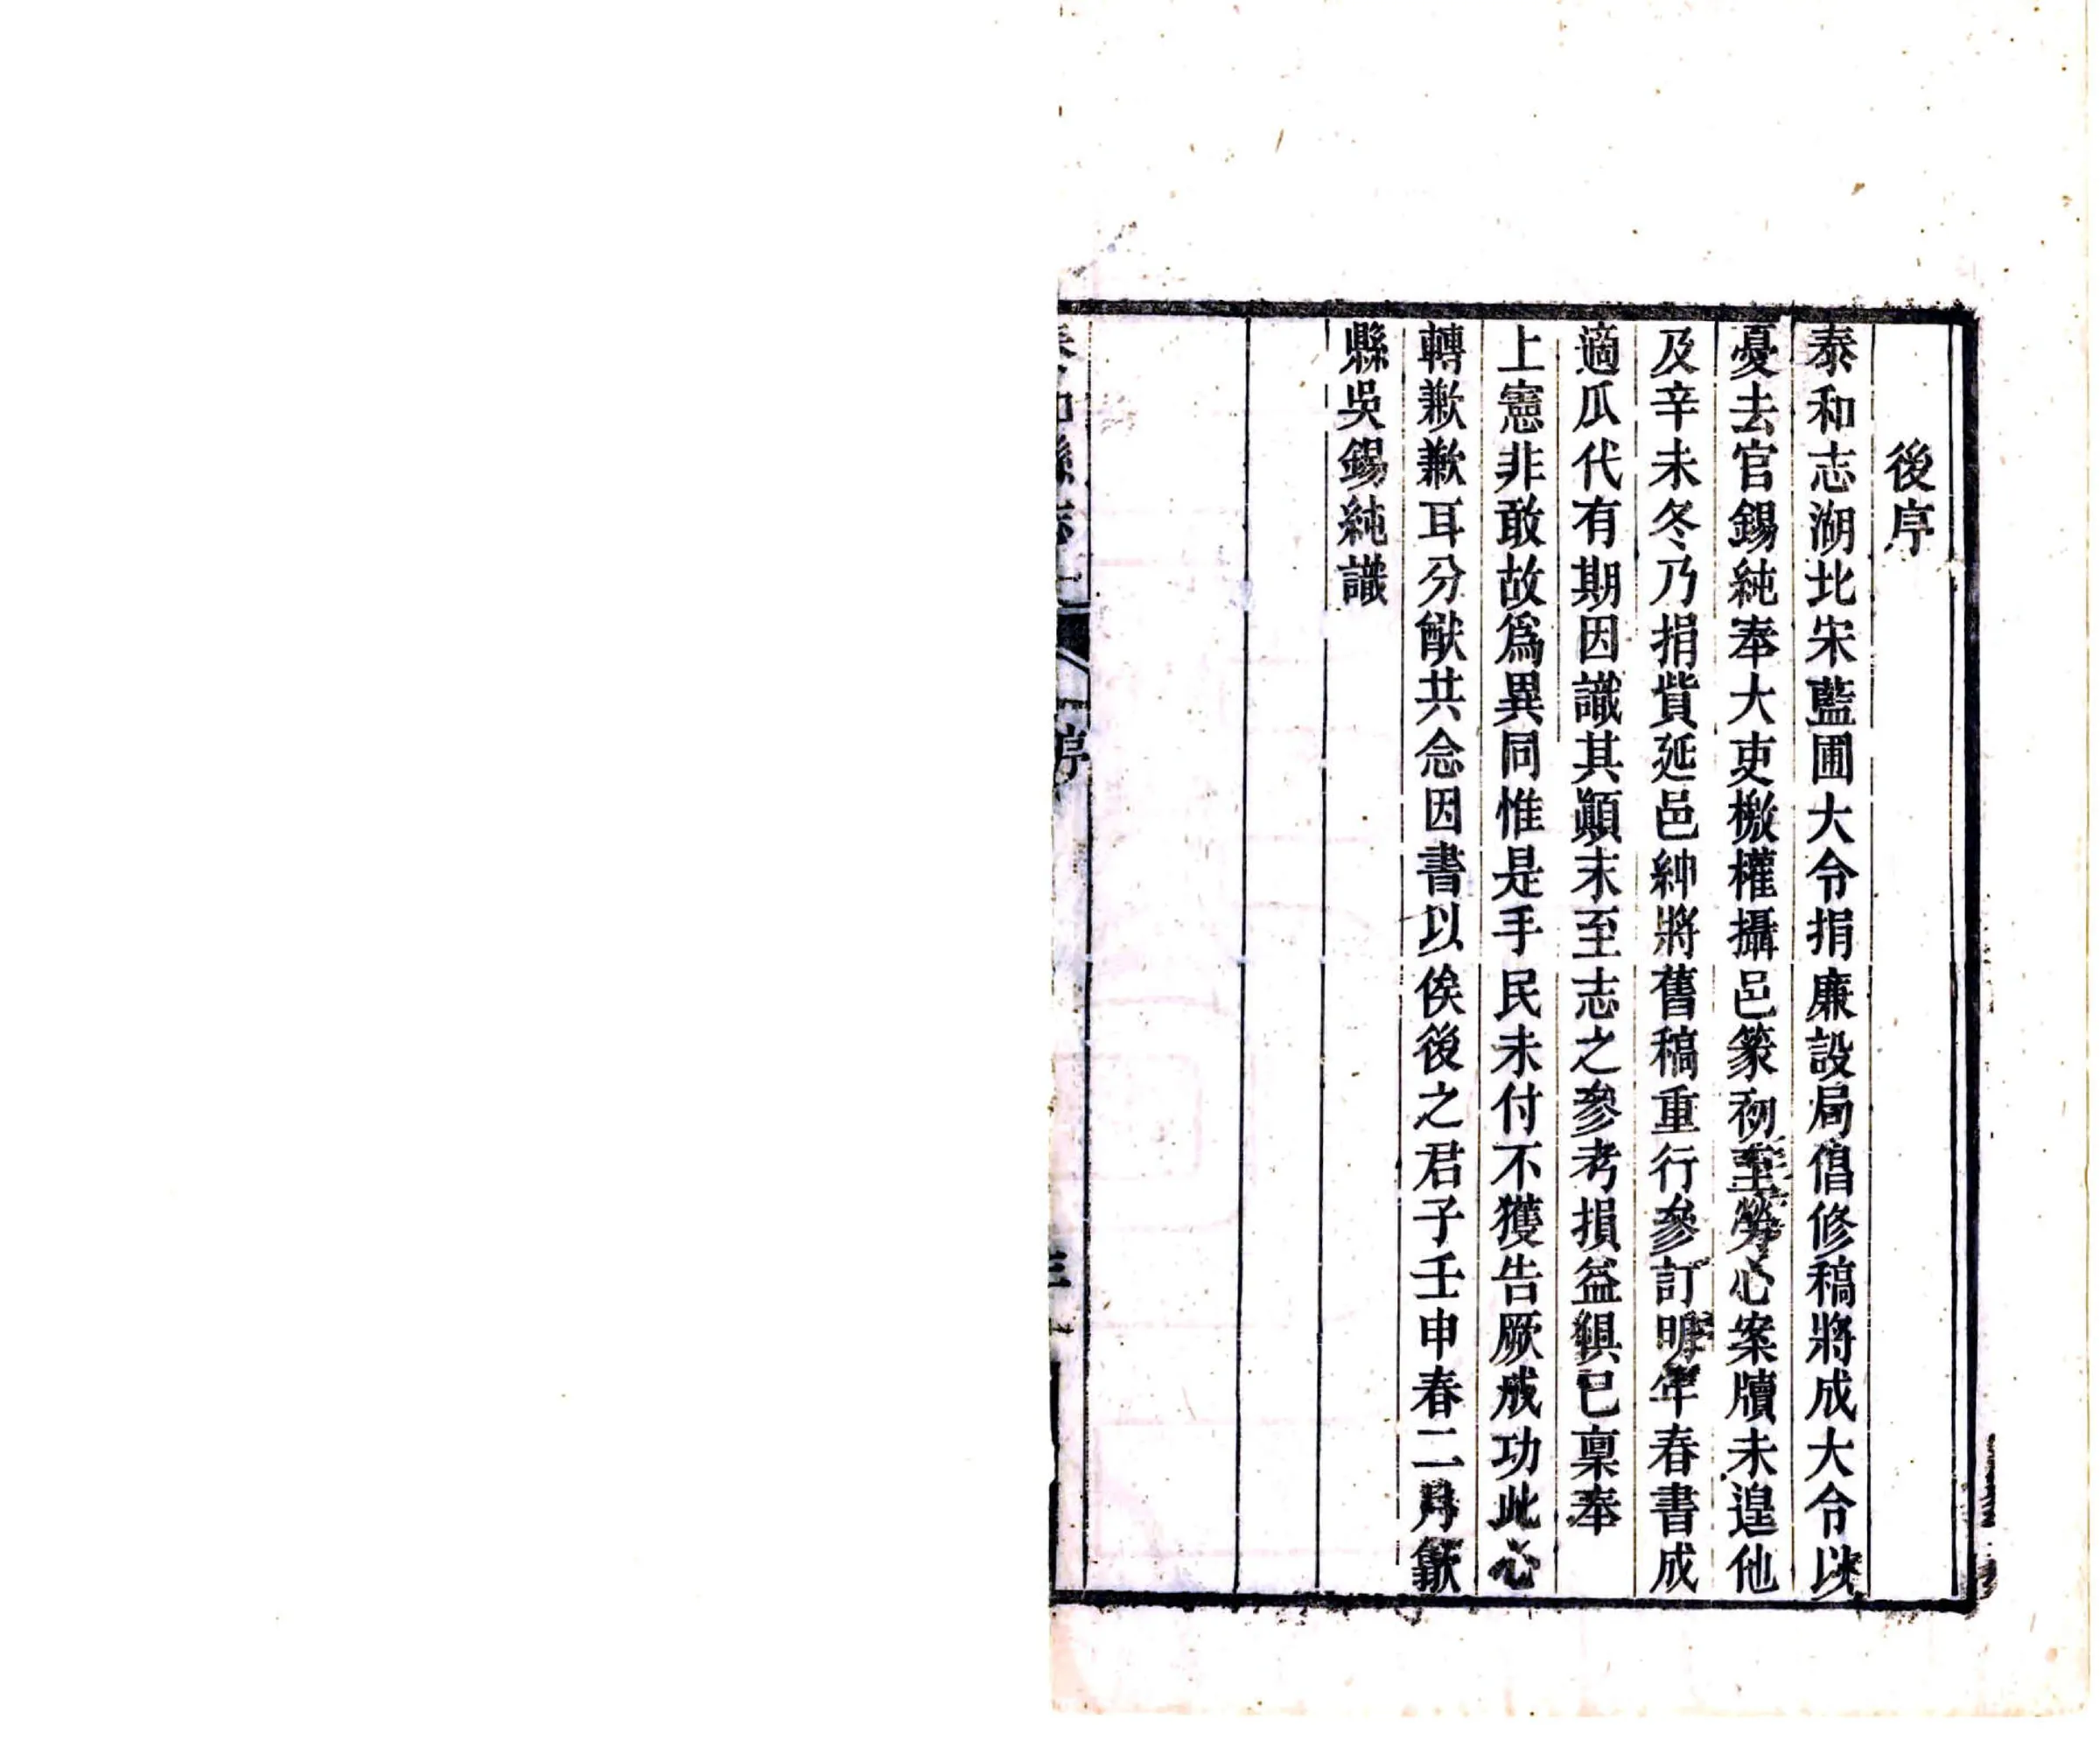 後序
泰和志湖北宋藍圃大令捐廉設局倡修稿將成大令以
憂去官錫純奉大吏檄權攝邑篆初至勞心案牘未遑他
及辛未冬乃捐貲延邑紳將舊稿重行參訂明年春書成
適瓜代有期因識其顛末至志之參考損益俱已稟奉
上憲非敢故為異同惟是手民未付不獲告厥成功此心
轉歉歉耳分猷共念因書以俟後之君子壬申春二月歙
縣吳錫純識
泰和縣志
序